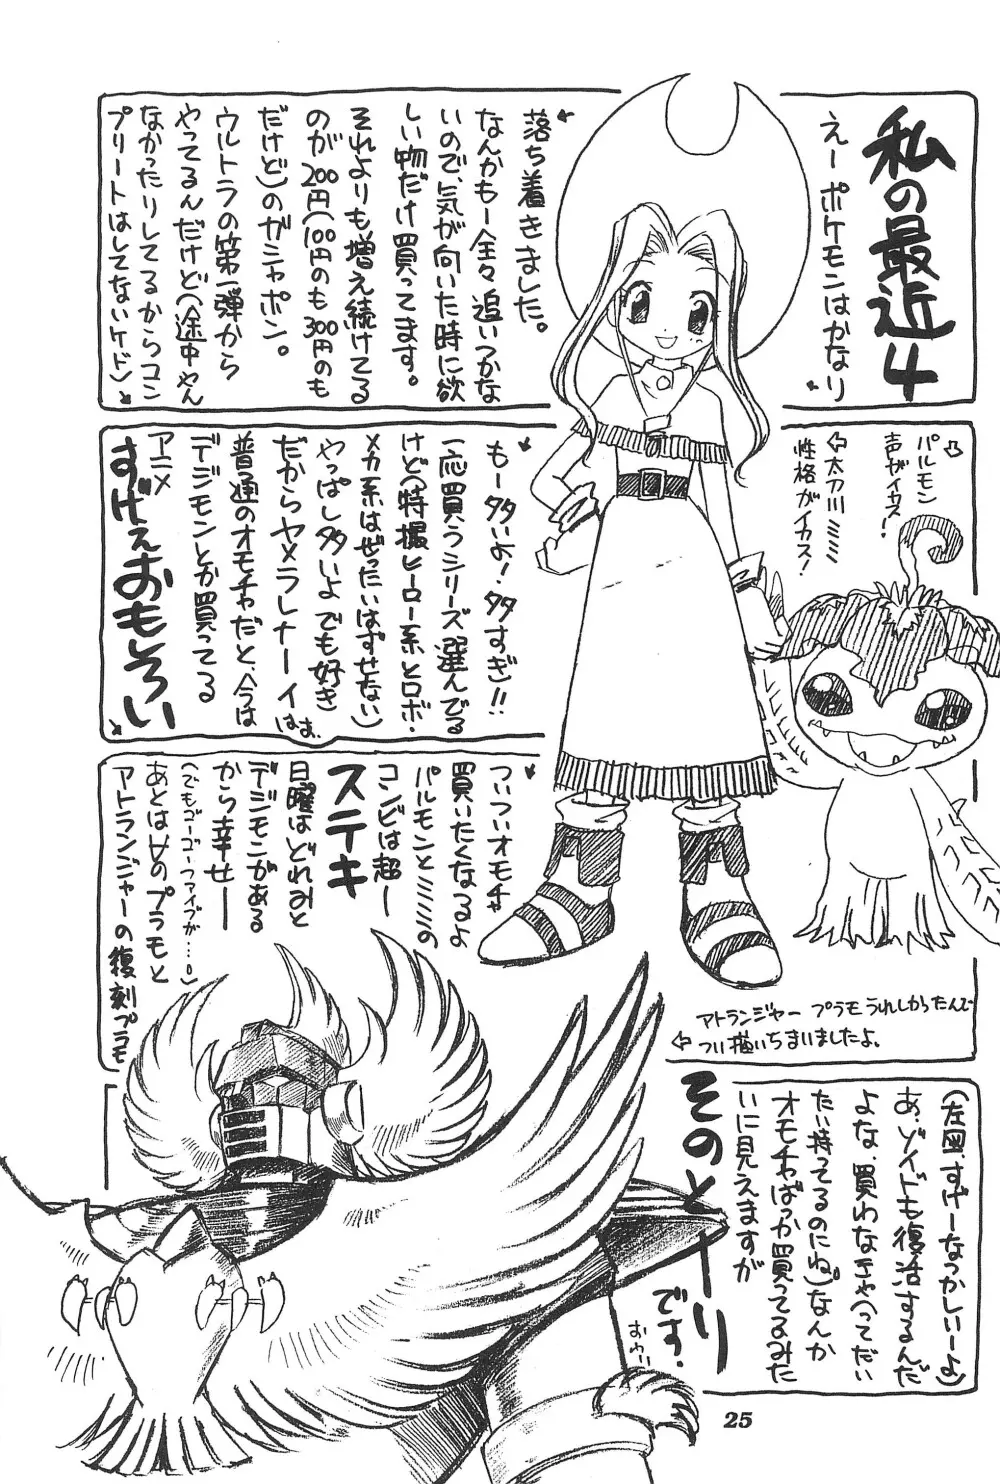 私の最近4
えーポケモンはかなり
落ち着きました。
なんかもー全々追いつかな
いので、気が向いた時に欲
しい物だけ買ってます。
それよりも増え続けてる
のが200円(100円のも300円のも
だけど)のガシャポン。
ウルトラの第一弾から
やってるんだけど(途中やん
なかったりしてるからコン
プリートはしてないケド)
パルモン
声がイカス!
太刀川ミミ
性格がイカス!
もー多いよ!多すぎ!!
一応買うシリーズ選んでる
けど(特撮ヒーロー系とロボ・
メカ系はぜったいはずせない)
やっぱし多いよでも好き
だからヤメラレナーイ
はぁ。
普通のオモチャだと、今は
デジモンとか買ってる
アニメ
すげぇおもしろい
ついついオモチャ
買いたくなるよ
パルモンとミミの
コンビは超ー
ステキ
日曜はどれみと
デジモンがある
から幸せー
(でもゴーゴーファイブが…。)
あとはVのプラモと
アトランジャーの復刻プラモ
アトランジャー プラモうれしかったんで
つい描いちまいましたよ。
(左図)すげーなつかしいーよ)
あ、ゾイドも復活するんだ
よな、買わなきゃ(ってだい
たい持ってるのにね)なんか
オモチャばっか買ってるみた
いに見えますが
そのとーり
です。
おぅ!!
25